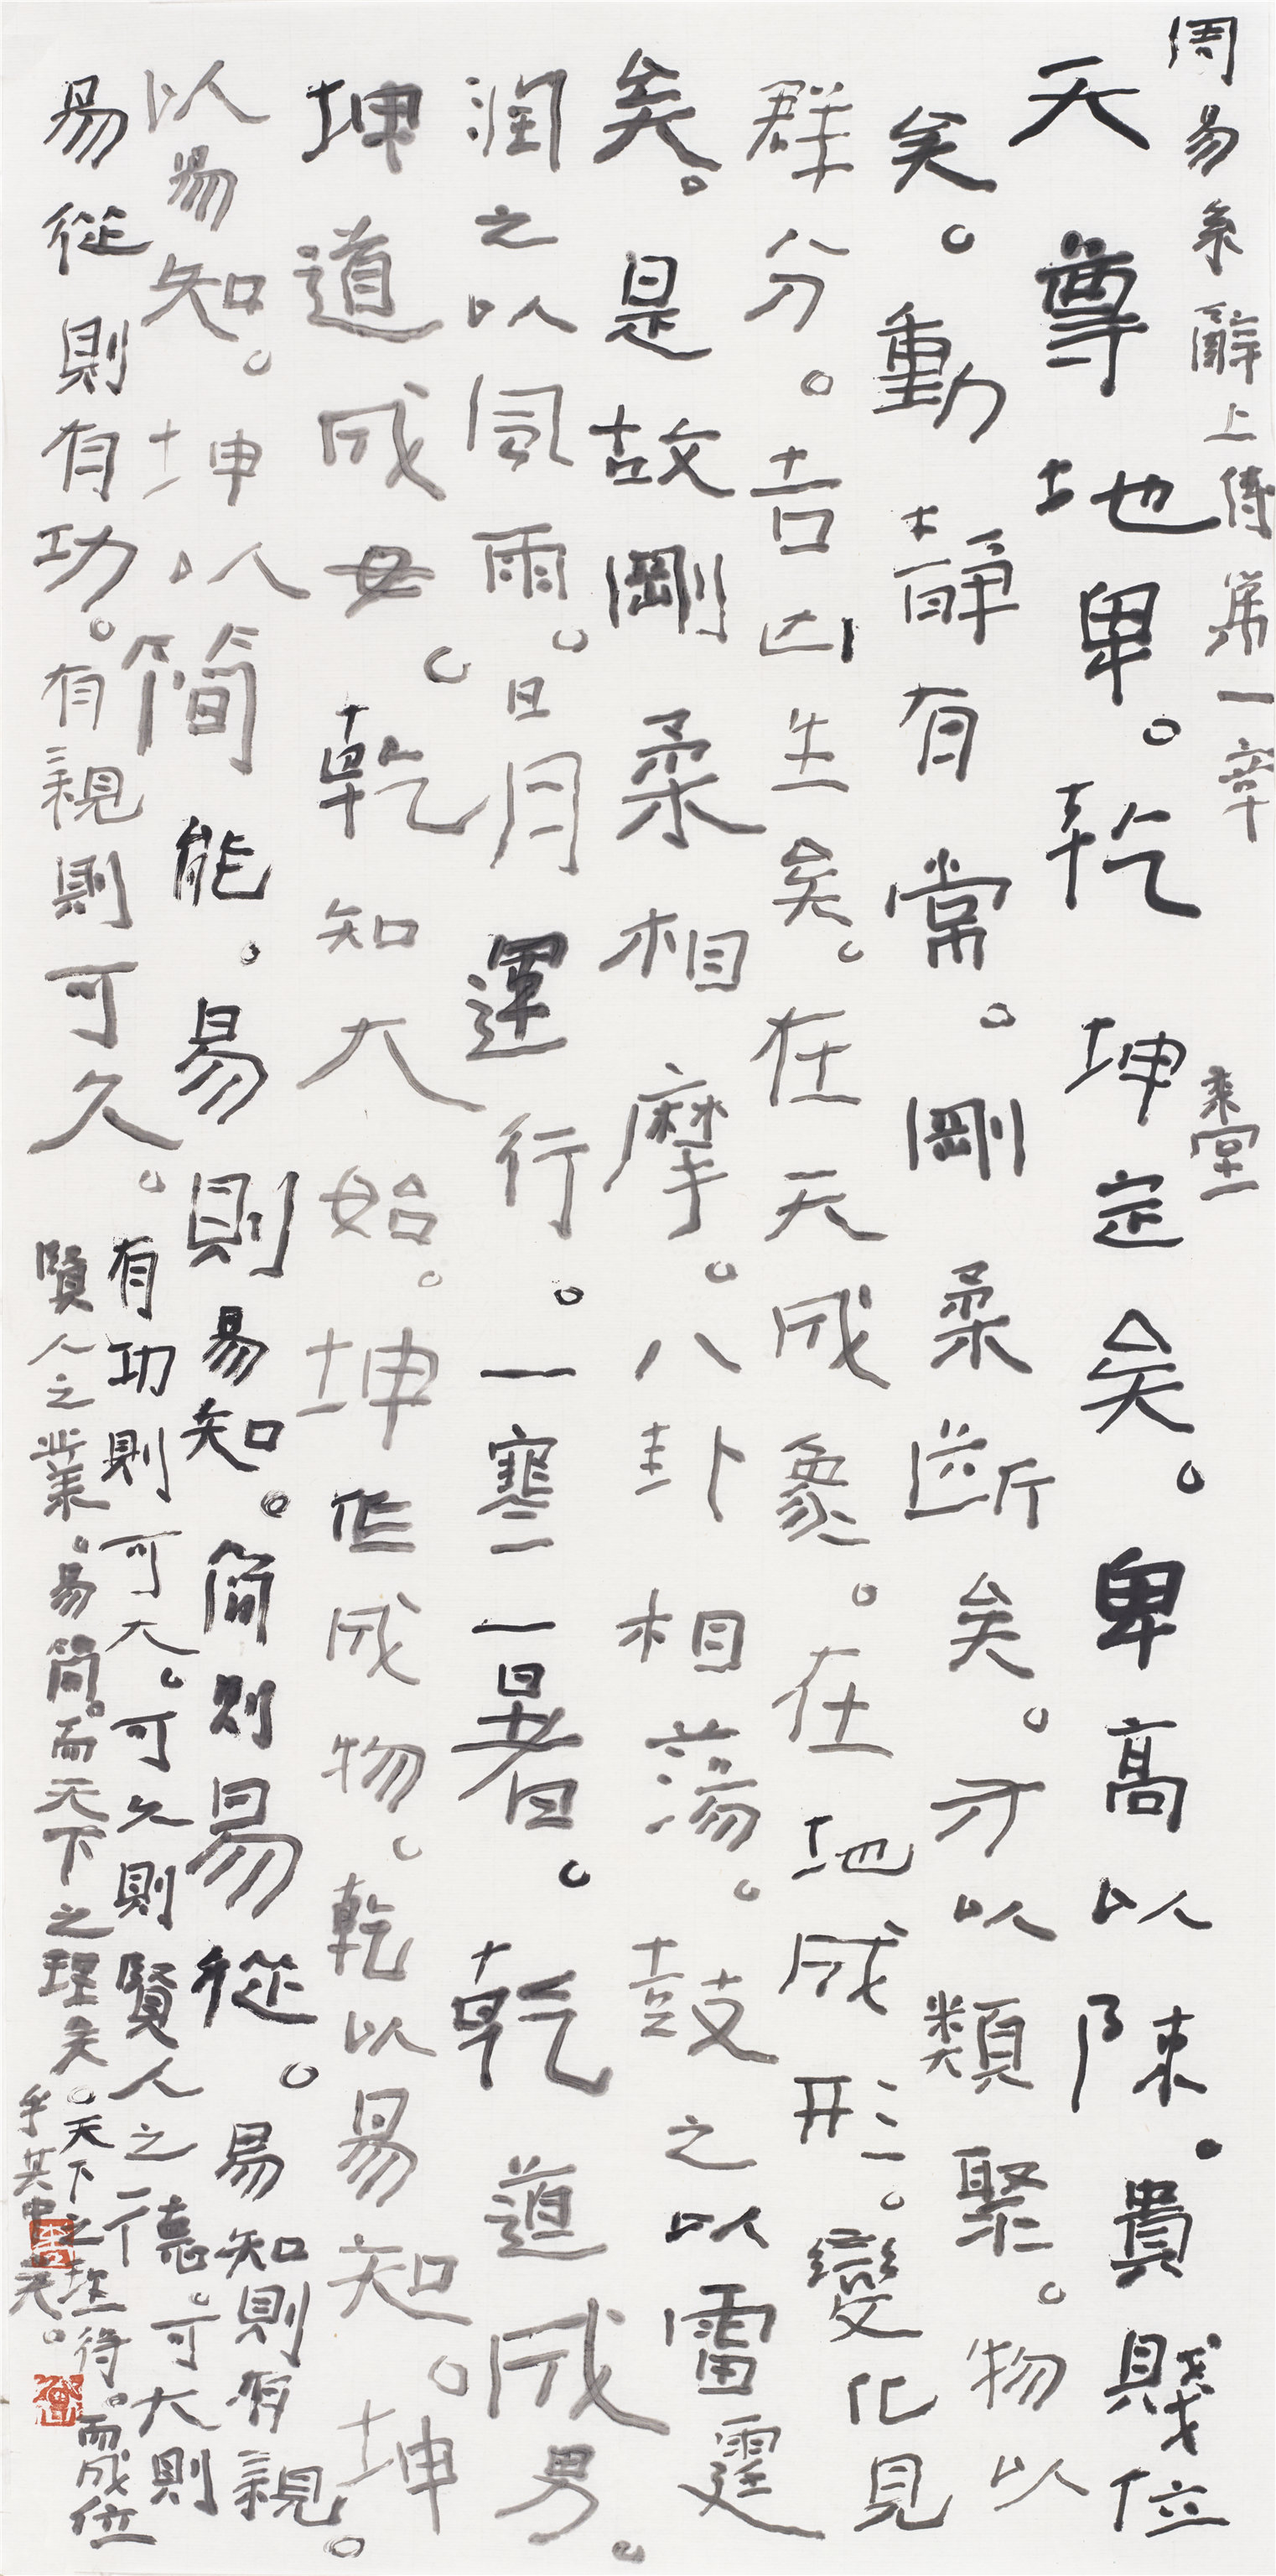 周易系辭上傳第一章 堂
天尊地卑。乾坤定矣。卑高以陳。貴賤位
矣。動靜有常。剛柔斷矣。方以類聚。物以
群分。吉凶生矣。在天成象。在地成形。變化見
矣。是故剛柔相摩。八卦相蕩。鼓之以雷霆
潤之以風雨。日月運行。一寒一暑。乾道成男。
坤道成女。乾知大始。坤作成物。乾以易知。坤
以易知。坤以簡能。易則易知。簡則易從。易知則有親。
易從則有功。有親則可久。有功則可大。可久則賢人之德。可大則
賢人之業。易簡。而天下之理矣。天下之理得。而成位
乎其中矣。